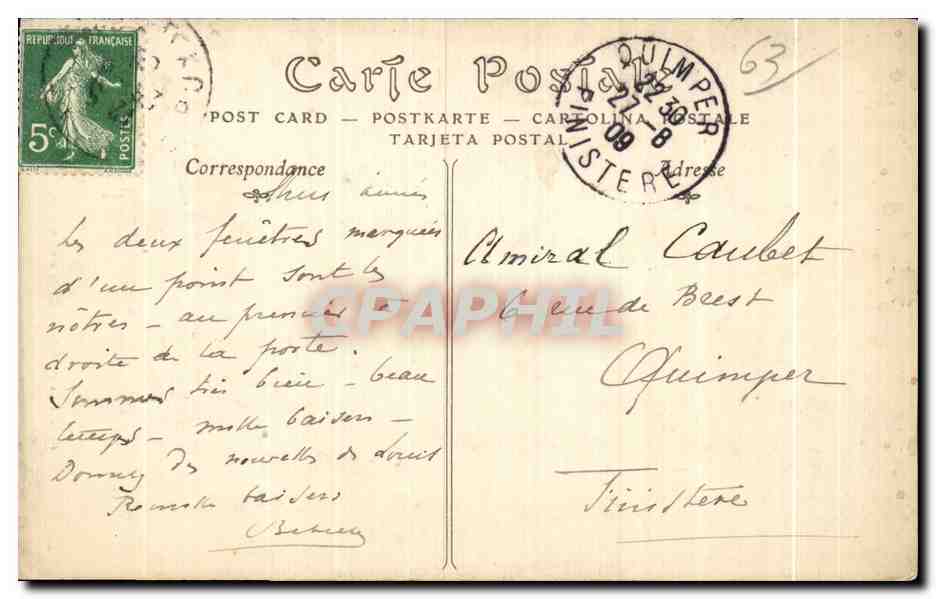 REPUBLIQUE FRANÇAISE
5c
POSTES
63
Carte Postale
QUIMPER
22 30
27 - 8
09
FINISTERE
POST CARD — POSTKARTE — CARTOLINA POSTALE
TARJETA POSTAL
Correspondance
Adresse
aimés
Les deux fenêtres marquées
d'un point sont les
nôtres - au premier à
droite de la porte.
Sommes très bien - beau
temps - mille baisers -
Donnez des nouvelles de Louis
baisers
Amiral Caubet
6 rue de Brest
Quimper
Finistère
CPAPHIL